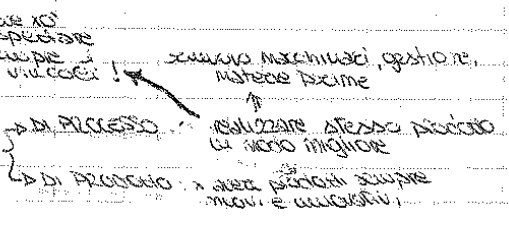 che xò
aspettare
sempre i
vincoli!
macchinari, gestione,
materie prime
→ DI PROCESSO: realizzare stesso prodotto
in modo migliore
↳ DI PRODOTTO: prodotti sempre
nuovi e innovativi,